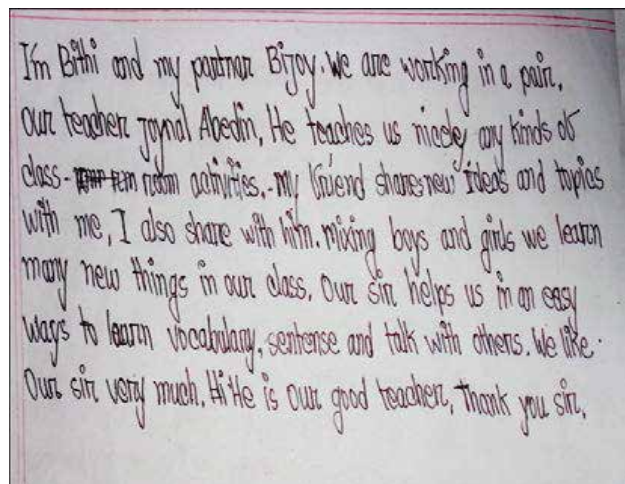 I'm Bithi and my partnar Bijoy. We are working in a pair,
our teacher Joynal Abedin, He teaches us nicely any kinds of
class - room activities. - my friend shares new ideas and topics
with me, I also share with him. mixing boys and girls we learn
many new things in our class. Our sir helps us in an easy
ways to learn vocabulary, sentense and talk with others. We like
Our sir very much. He is our good teacher, thank you sir,